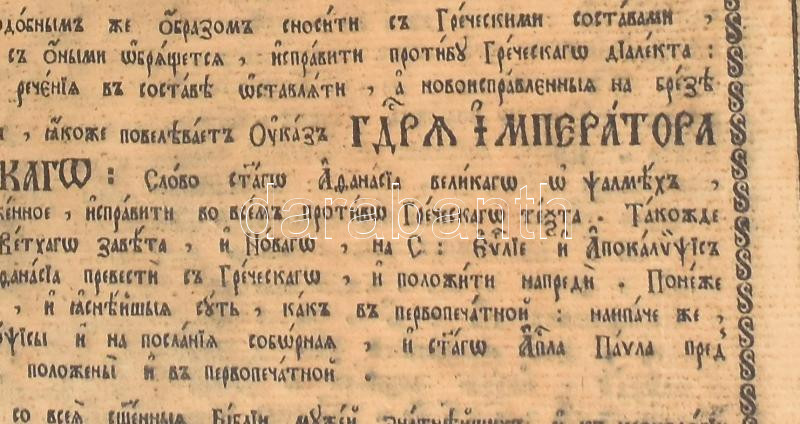 же ѻ҆́бразомъ сноси́ти съ Гре́ческими соста́вами ,
съ ѻ҆́ными ѡ҆брѧ́щетсѧ , и҆спра́вити проти́вꙋ Гре́ческагѡ дїале́кта :
рече́нїѧ въ соста́вѣ ѡ҆ставлѧ́ти , а҆ новоиспра́вленныѧ на бре́зѣ
, ꙗ҆́коже повелѣва́етъ Оу҆ка́зъ ГДⷭ҇РѦ И҆МПЕРА́ТОРА
КАГѠ : Сло́во ст҃а́гѡ А҆ѳана́сїа вели́кагѡ ѡ҆ ѱалмѣ́хъ ,
и҆спра́вити во вре́мѧ проти́вѡ Гре́ческагѡ те́ѯта . Та́кожде
Ве́тхагѡ завѣ́та , и҆ Но́вагѡ , на С : Е҆ѵⷢ҇лїе и҆ А҆пока́лѷѱїсъ
превестѝ съ Гре́ческагѡ , и҆ положи́ти напредѝ . Поне́же
, и҆ ꙗ҆снѣ́йшыѧ сꙋ́ть , ка́къ въ первопеча́тной : наипа́че же ,
и҆ на посла́нїѧ собѡ́рнаѧ , и҆ ст҃а́гѡ А҆пⷭ҇ла Па́ѵла пред̾
положены̀ и҆ въ первопеча́тной .
со все́ѧ сщ҃е́нныѧ Бі́блїи мꙋже́й
darabanth